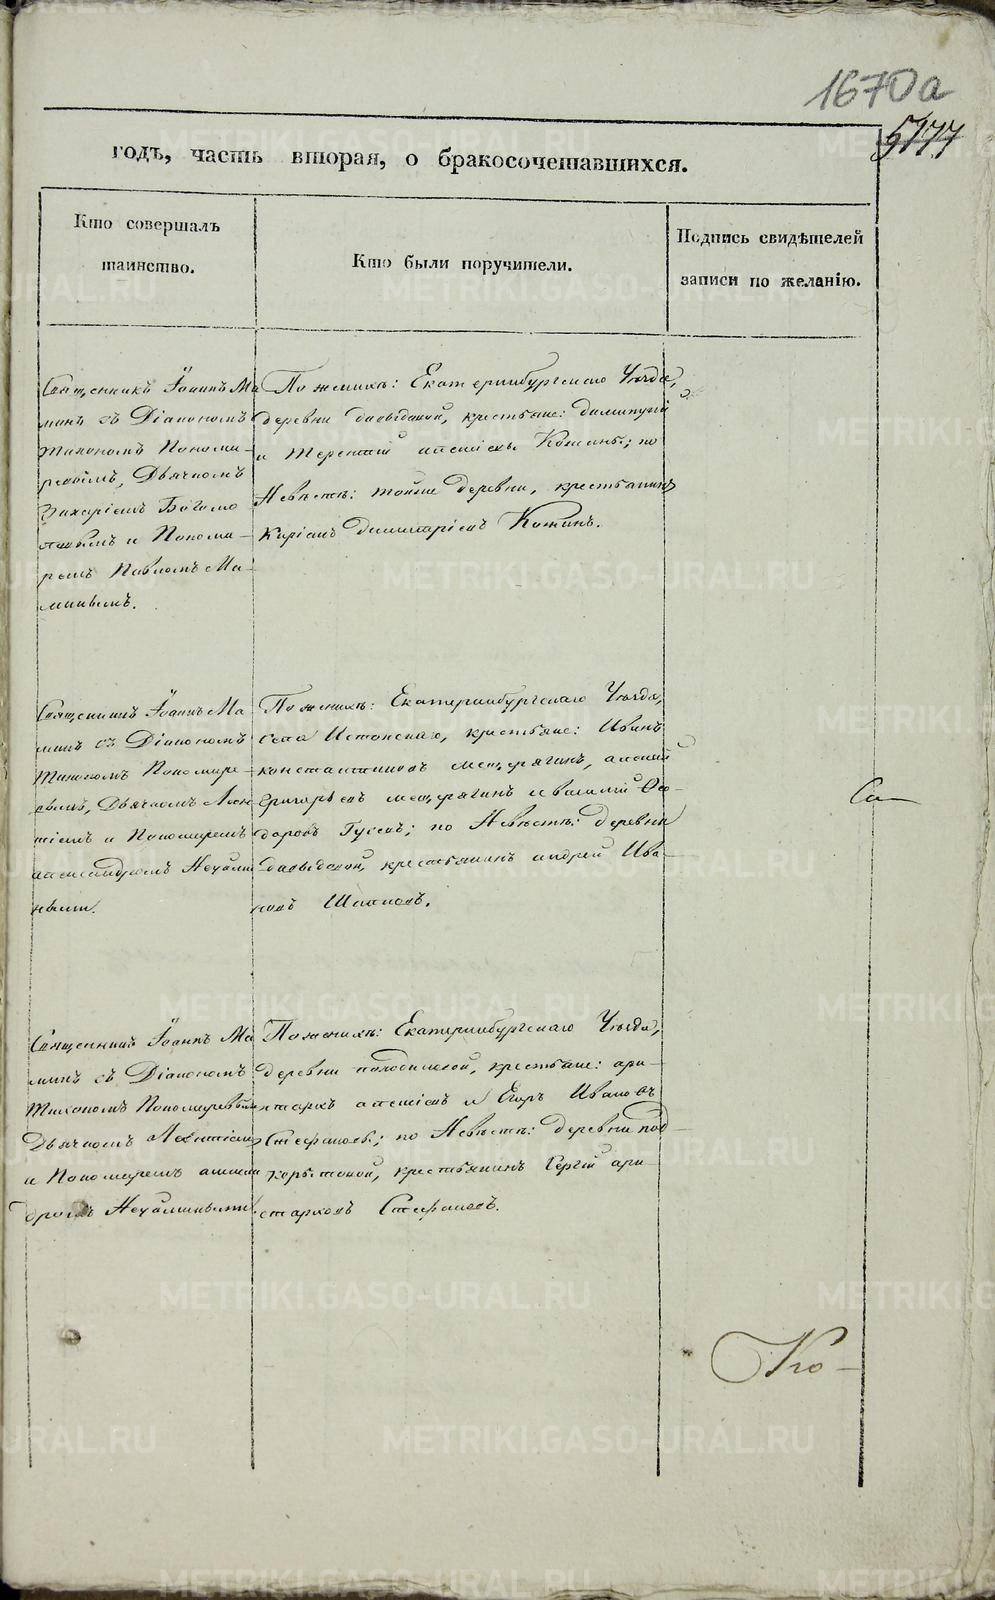 1670а
5177
годъ, часть вторая, о бракосочетавшихся.
Кто совершалъ
таинство.
Кто были поручители.
Подпись свидѣтелей
записи по желанію.
Священникъ Іоаннъ Ма
минъ съ Діакономъ
Тихономъ Понома-
ревымъ, Дьячкомъ
Захаріемъ Богомо
ловымъ и Понома-
ремъ Павломъ Ма-
минымъ.
По женихѣ: Екатеринбургскаго Уѣзда,
деревни Давыдовой, крестьяне: Димитрій
и Терентій Кожины; по
Невѣстѣ: тойже деревни, крестьянинъ
Киріанъ Димитріевъ Кожинъ.
Священникъ Іоаннъ Ма
минъ съ Діакономъ
Тихономъ Пономаре-
вымъ, Дьячкомъ Леон
тіемъ и Пономаремъ
Александромъ Неуймин
нымъ.
По женихѣ: Екатеринбургскаго Уѣзда,
Села Истокскаго, крестьяне: Иванъ
Константиновъ Мещерягинъ, Алексѣй
Григорьевъ Мещерягинъ и Василій Фео-
доровъ Гусевъ; по Невѣстѣ: деревни
Давыдовой, крестьянинъ Андрей Ива-
новъ
Священникъ Іоаннъ Ма
минъ съ Діакономъ
Тихономъ Пономаревымъ
Дьячкомъ Леонтіемъ
и Пономаремъ Алексан
дромъ Неуйминымъ.
По женихѣ: Екатеринбургскаго Уѣзда,
деревни крестьяне: Ари-
стархъ и Егоръ Ивановъ
Стефановы; по Невѣстѣ: деревни Под-
корытовой, крестьянинъ Сергій Ари-
старховъ Стефановъ.
Са-
Ко-
METRIKI.GASO-URAL.RU